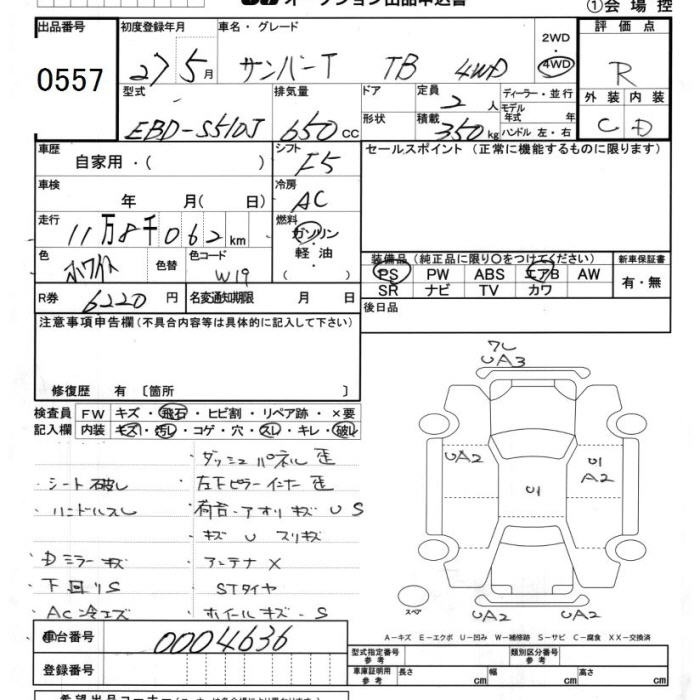 オークション出品申込書 ①会場控
出品番号 初度登録年月 車名・グレード 2WD 評価点
0557 27 5月 サンバーT TB 4WD 4WD R
型式 排気量 ドア 定員 2人 ディーラー・並行 外装 内装
モデル年式 年
EBD-S510J 650cc 形状 積載 350kg ハンドル 左・右 C D
車歴 自家用・( ) シフト F5 セールスポイント (正常に機能するものに限ります)
車検 年 月( 日) 冷房 AC
走行 11万8千062km 燃料 ガソリン
色 ホワイト 色替 色コード W19 軽油 ( ) 装備品(純正品に限り○をつけてください) 新車保証書
PS PW ABS エアB AW 有・無
R券 6220円 名変通知期限 月 日 SR ナビ TV カワ
注意事項申告欄(不具合内容等は具体的に記入して下さい) 後日品
7L
UA3
修復歴 有 〔箇所 〕
検査員 FW キズ・飛石・ヒビ割・リペア跡・×要
記入欄 内装 キズ・汚レ・コゲ・穴・スレ・キレ・破レ
・ダッシュパネル歪 UA2 U1
・シート破レ ・左下ピラーインナー歪 A2
・ハンドルスレ ・荷台・アオリキズ U S U1
・キズ U スリキズ
・Dミラーキズ ・アンテナX
・下回りS STタイヤ
・AC冷エズ ・ホイールキズ・S スペア UA2 UA2
車台番号 0004636 A−キズ E−エクボ U−凹み W−補修跡 S−サビ C−腐食 XX−交換済
型式指定番号 参考 類別区分番号 参考
登録番号 車庫証明用 参考 長さ cm 幅 cm 高さ cm